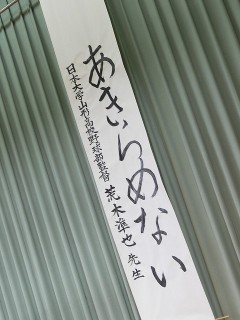 あきらめない
日本大学山形高校野球部監督 荒木準也 先生